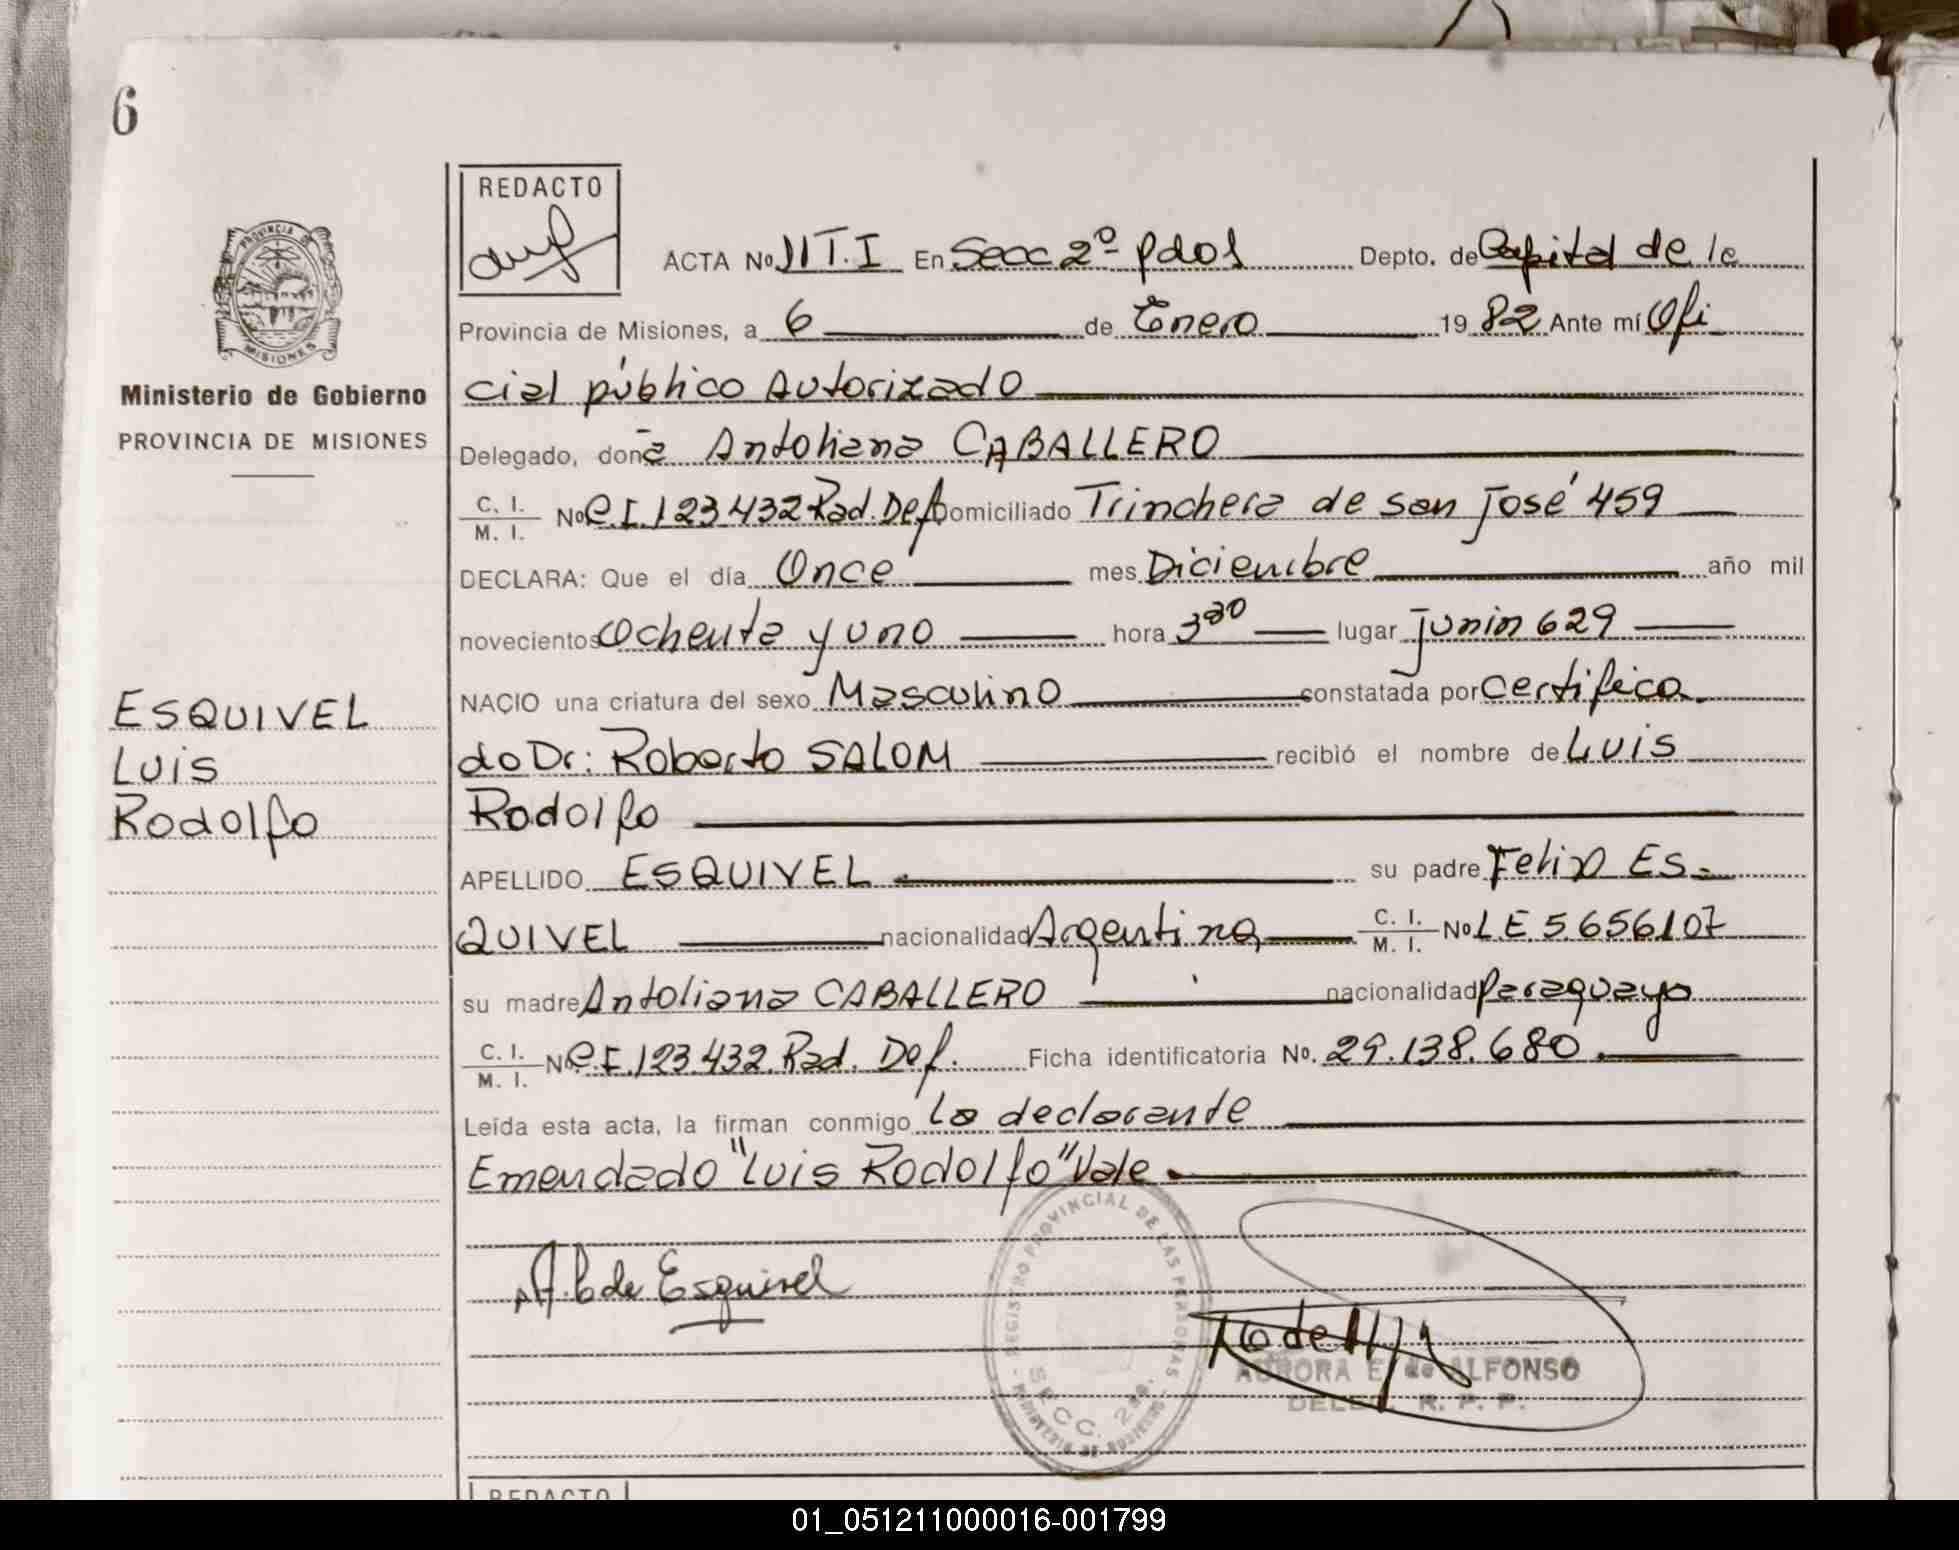 6
REDACTO
PROVINCIA DE
MISIONES
Ministerio de Gobierno
PROVINCIA DE MISIONES
ACTA No 11 T. I En Secc 2º pdas Depto. de Capital de la
Provincia de Misiones, a 6 de Enero 19 82 Ante mí Ofi
cial público Autorizado
Delegado, doña Antoliana CABALLERO
C. I. M. I. No C.I. 123.432 Rad. Def Domiciliado Trinchera de san José 459
DECLARA: Que el día Once mes Diciembre año mil
novecientos Ochenta y uno hora 3³⁰ lugar Junin 629
NACIO una criatura del sexo Masculino constatada por Certifica
do Dr: Roberto SALOM recibió el nombre de Luis
Rodolfo
APELLIDO ESQUIVEL su padre Felix ES-
QUIVEL nacionalidad Argentina C. I. M. I. No L.E 5.656.107
su madre Antoliana CABALLERO nacionalidad Paraguaya
C. I. M. I. No C.I. 123.432 Rad. Def. Ficha identificatoria No. 29.138.680
Leída esta acta, la firman conmigo La declarante
Emendado "Luis Rodolfo" Vale
ESQUIVEL
Luis
Rodolfo
A. C de Esquivel
REGISTRO PROVINCIAL DE LAS PERSONAS - MINISTERIO DE GOBIERNO -
SECC. 2da.
AURORA E. de ALFONSO
DELEG. R. P. P.
REDACTO
01_051211000016-001799